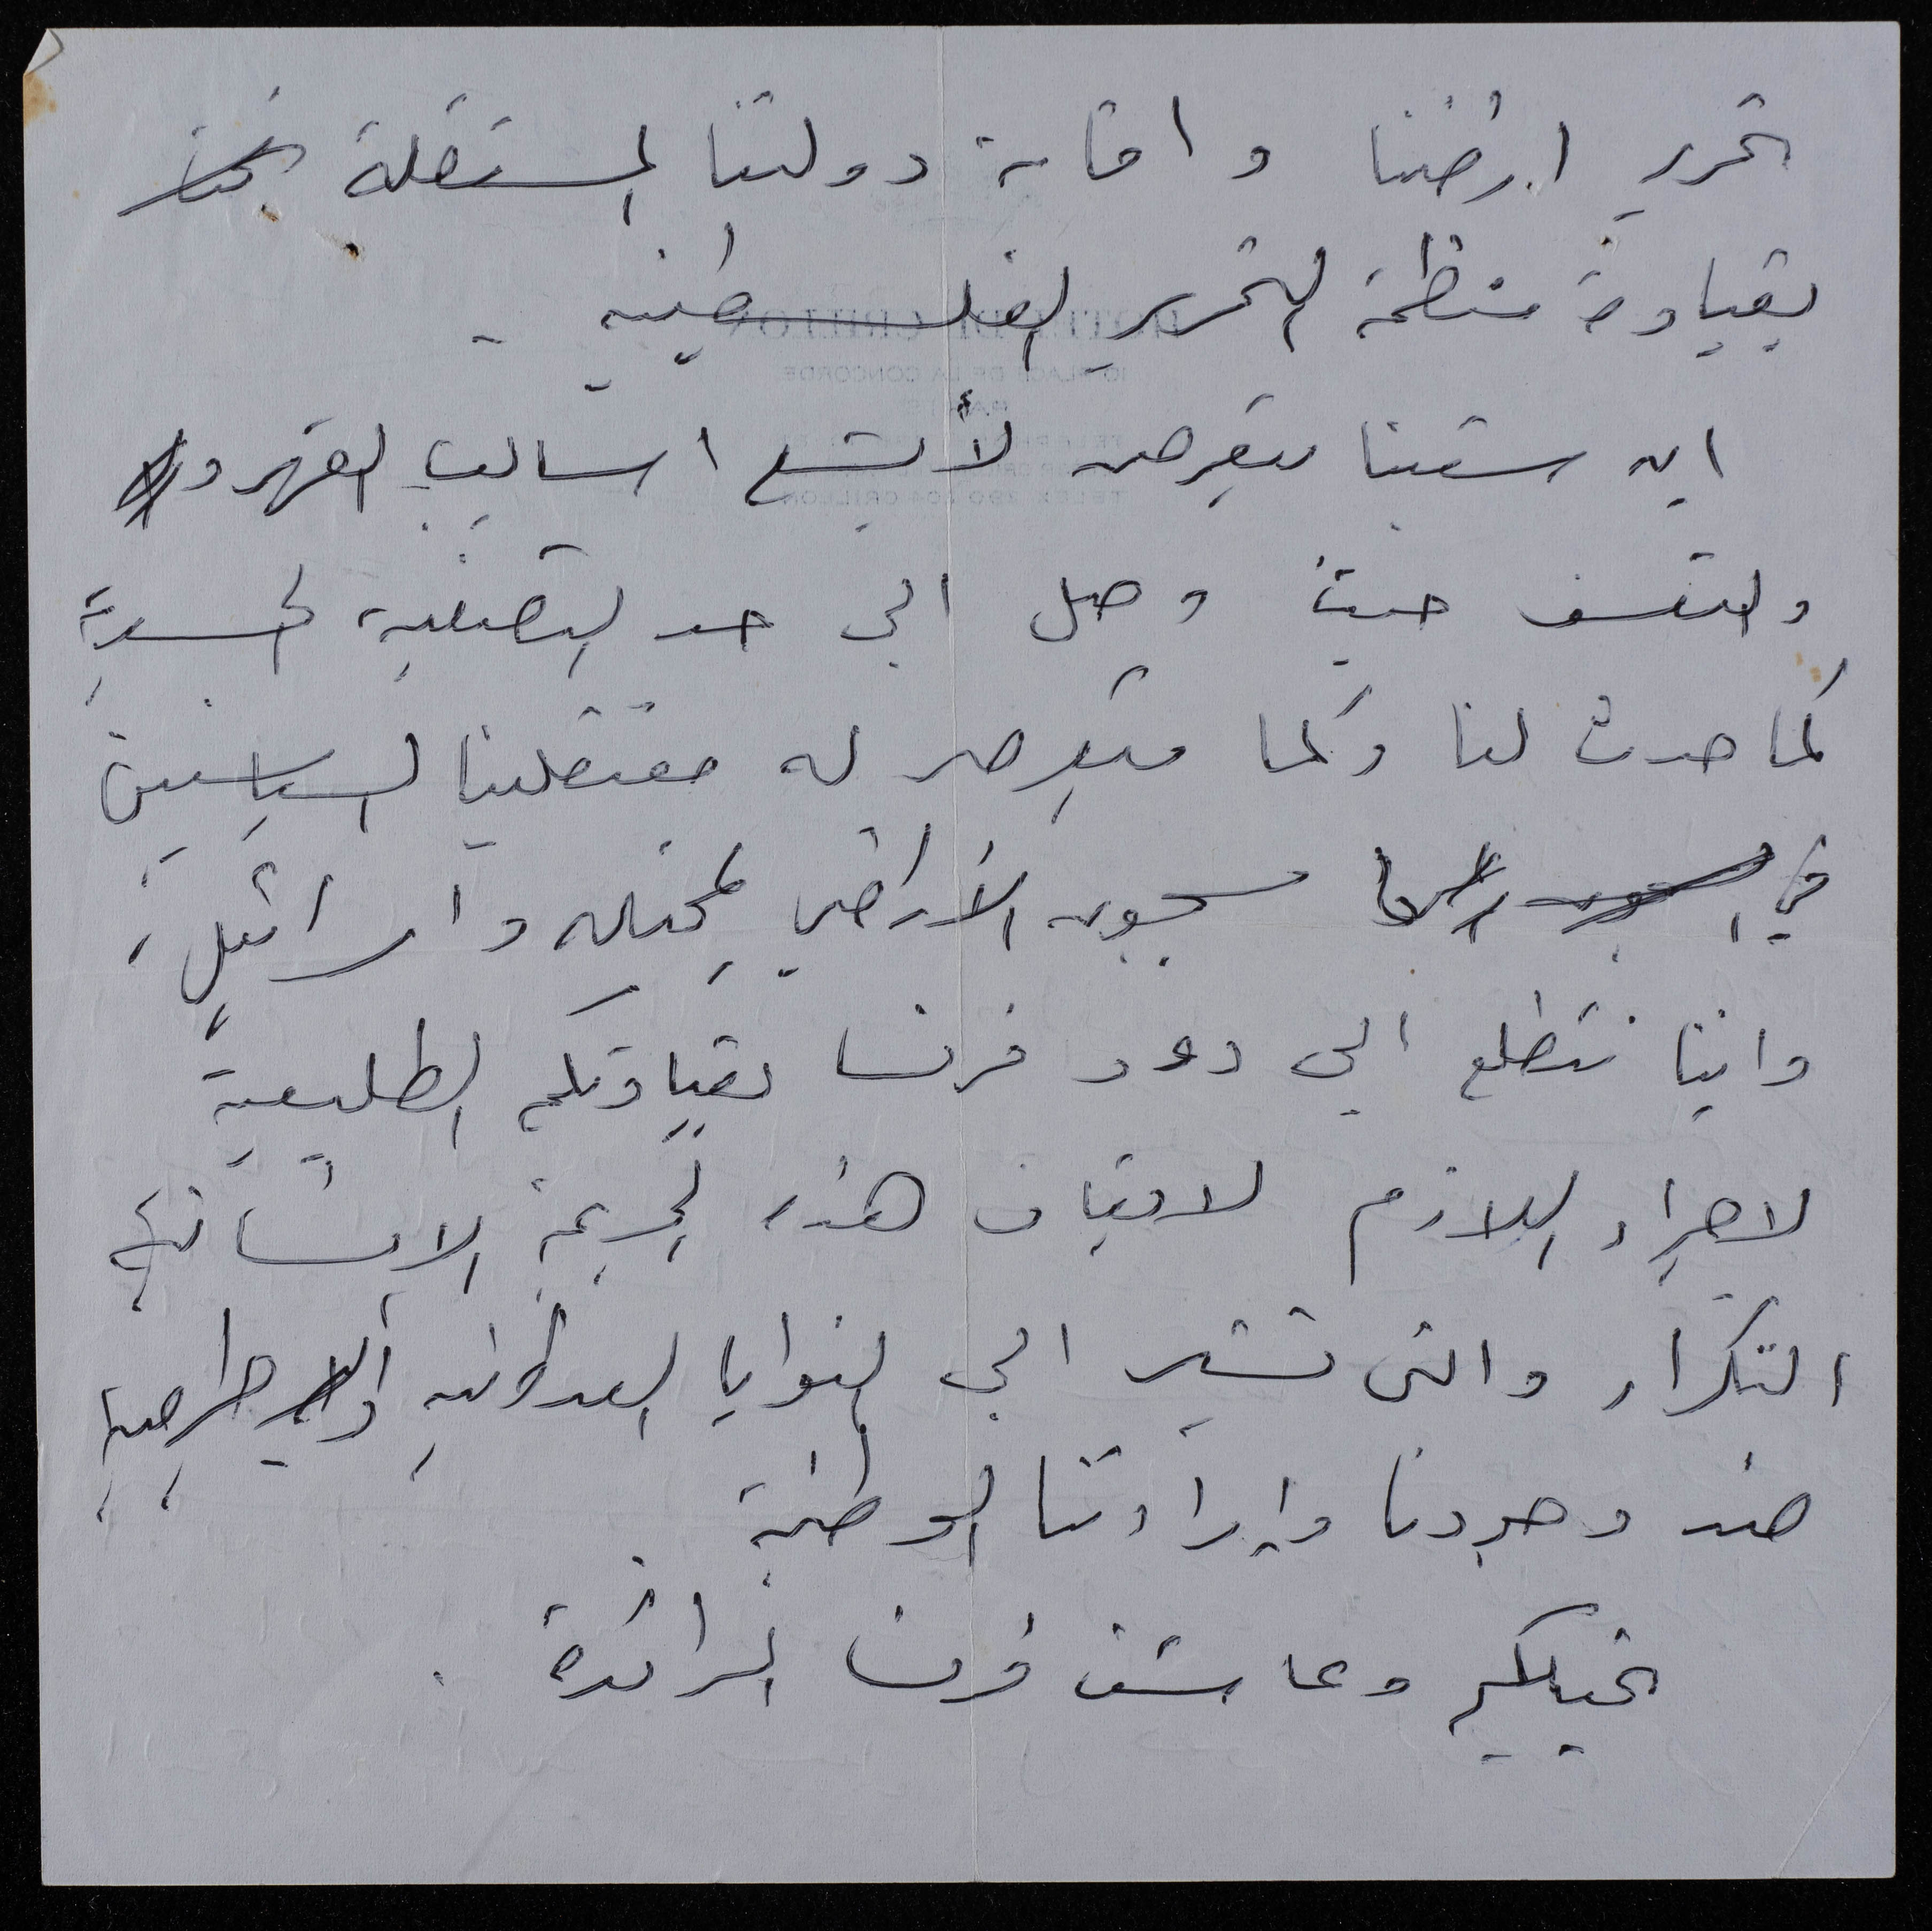 تحرير ارضنا و اقامة دولتنا المستقلة
بقيادة منظمة التحرير الفلسطينيه .
ان شعبنا يتعرض لأبشع اساليب القهر و
والتعسف حيث وصل الى حد التصفية الجسدية
كما حدث لنا وكما يتعرض له معتقلينا السياسيين
في سجون الأراضي المحتله واسرائيل .
واننا نتطلع الى دور فرنسا بقيادتكم الطليعية
لاجراء اللازم لايقاف هذه الجريمة الانسانية
التكرار والتى تشير الى النوايا العدوانيه
ضد وجودنا وإرادتنا الوطنية .
نحييكم وعاشت فرنسا الرائدة .
HOTEL DE CRILLON
10 PLACE DE LA CONCORDE
PARIS
TELEX 290 204 CRILLON